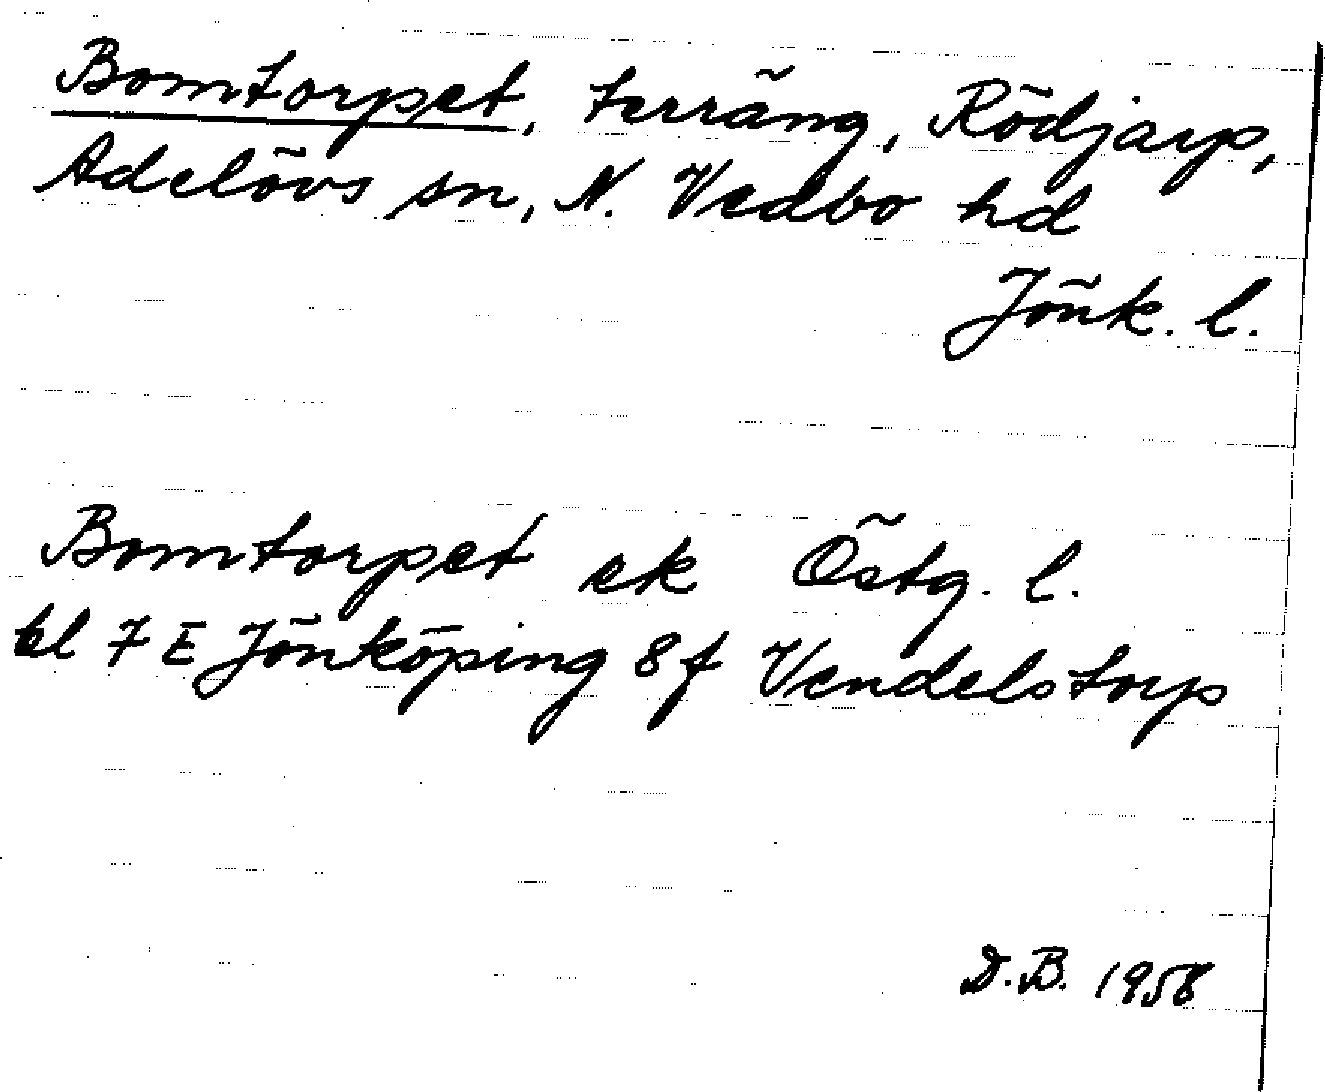 Bomtorpet, terräng, Rödjarp,
Adelövs sn, N. Vedbo hd
Jönk. l.
Bomtorpet ek Östg. l.
bl 7 E Jönköping 8f Vendelstorp
D.B. 1958